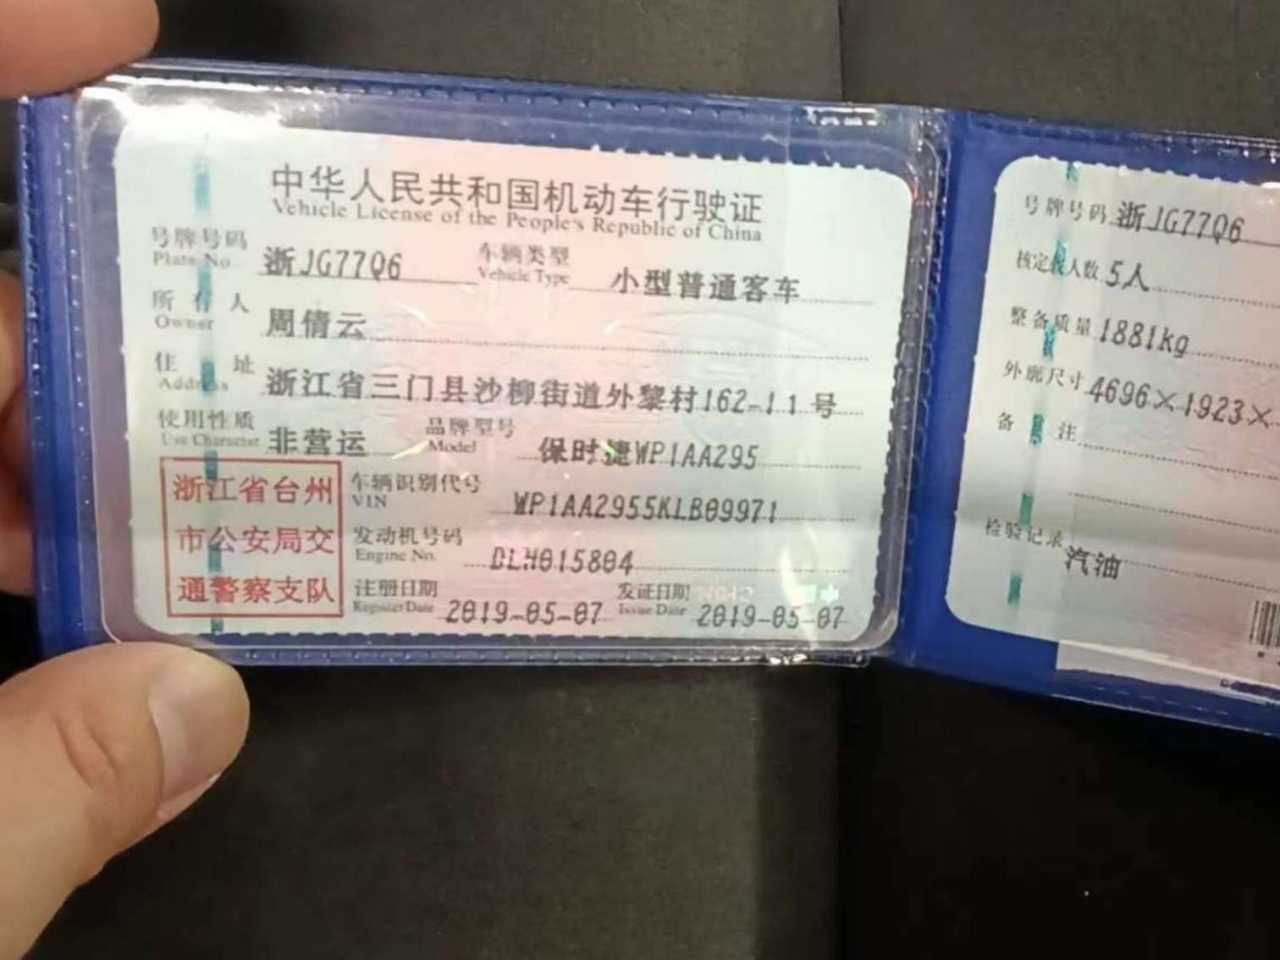 中华人民共和国机动车行驶证
Vehicle License of the People's Republic of China
号牌号码 浙JG77Q6 车辆类型 小型普通客车
Plate No. Vehicle Type
所有人 周倩云
Owner
住址 浙江省三门县沙柳街道外黎村162-11号
Address
使用性质 非营运 品牌型号 保时捷WP1AA295
Use Character Model
浙江省台州
市公安局交
通警察支队
车辆识别代号 WP1AA2955KLB09971
VIN
发动机号码 DLH015804
Engine No.
注册日期 2019-05-07 发证日期 2019-05-07
Register Date Issue Date
号牌号码 浙JG77Q6
核定载人数 5人
整备质量 1881kg
外廓尺寸 4696×1923×
备注
检验记录 汽油